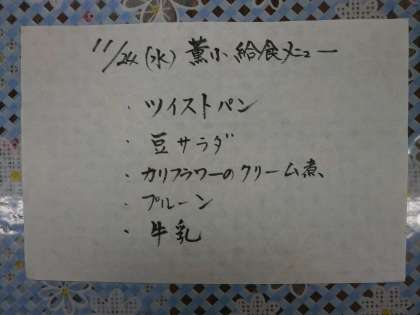 11/24(水) 薫小 給食メニュー
・ツイストパン
・豆サラダ
・カリフラワーのクリーム煮
・プルーン
・牛乳